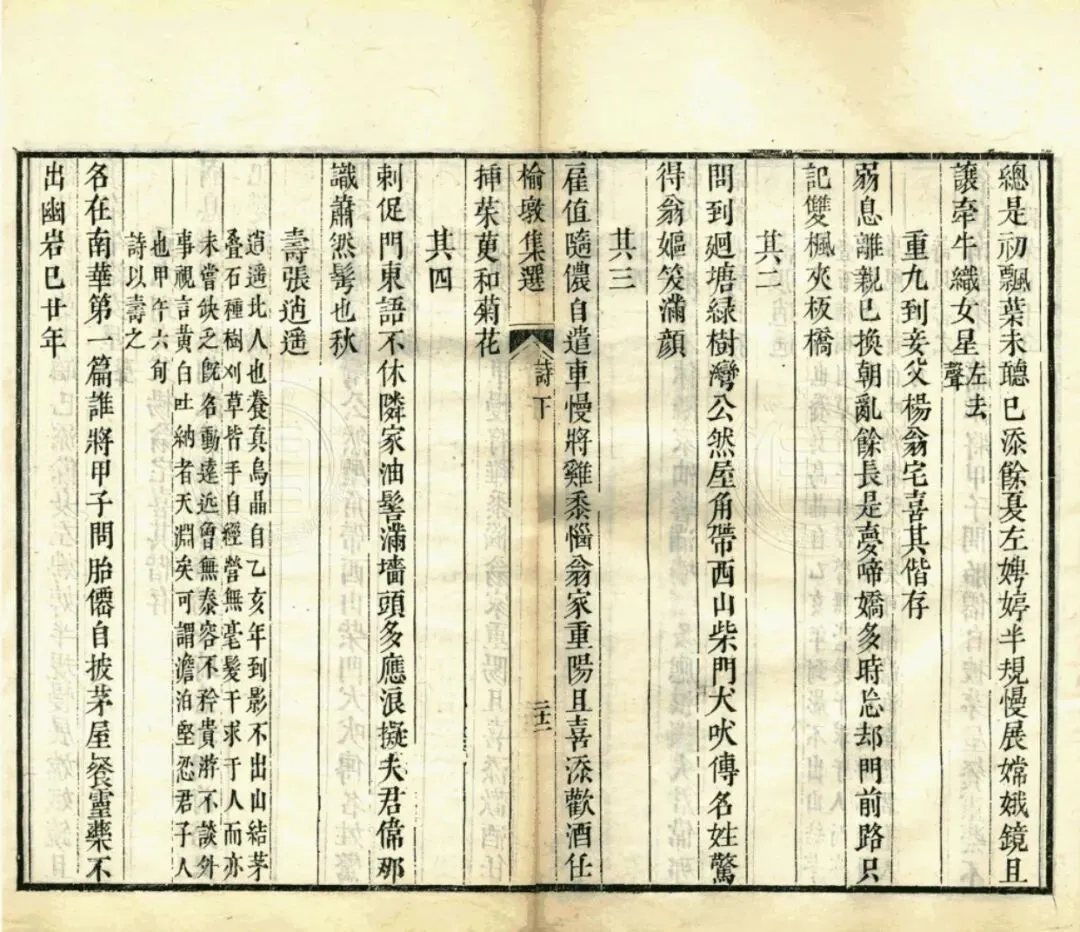 總是初飄葉未聽已添餘夏左娉婷半規慢展嫦娥鏡且
讓牽牛織女星左去聲
重九到妾父楊翁宅喜其偕存
弱息離親已換朝亂餘長是夢啼嬌多時忘却門前路只
記雙楓夾板橋
其二
問到廻塘綠樹灣公然屋角帶西山柴門犬吠傳名姓驚
得翁嫗笑滿顔
其三
雇值隨儂自遣車慢將雞黍惱翁家重陽且喜添歡酒任
榆墩集選
詩下
二十二
揷茱萸和菊花
其四
刺促門東語不休隣家油髻滿墻頭多應浪擬夫君偉那
識蕭然髩也秋
壽張逍遥
逍遥北人也養真烏晶自乙亥年到影不出山結茅
疊石種樹刈草皆手自經營無毫髮干求于人而亦
未嘗缺乏旣名動遠近曾無泰容不矜貴游不談外
事視言黃白吐納者天淵矣可謂澹泊堅忍君子人
也甲午六旬
詩以壽之
名在南華第一篇誰將甲子問胎僊自披茅屋餐靈藥不
出幽岩已廿年